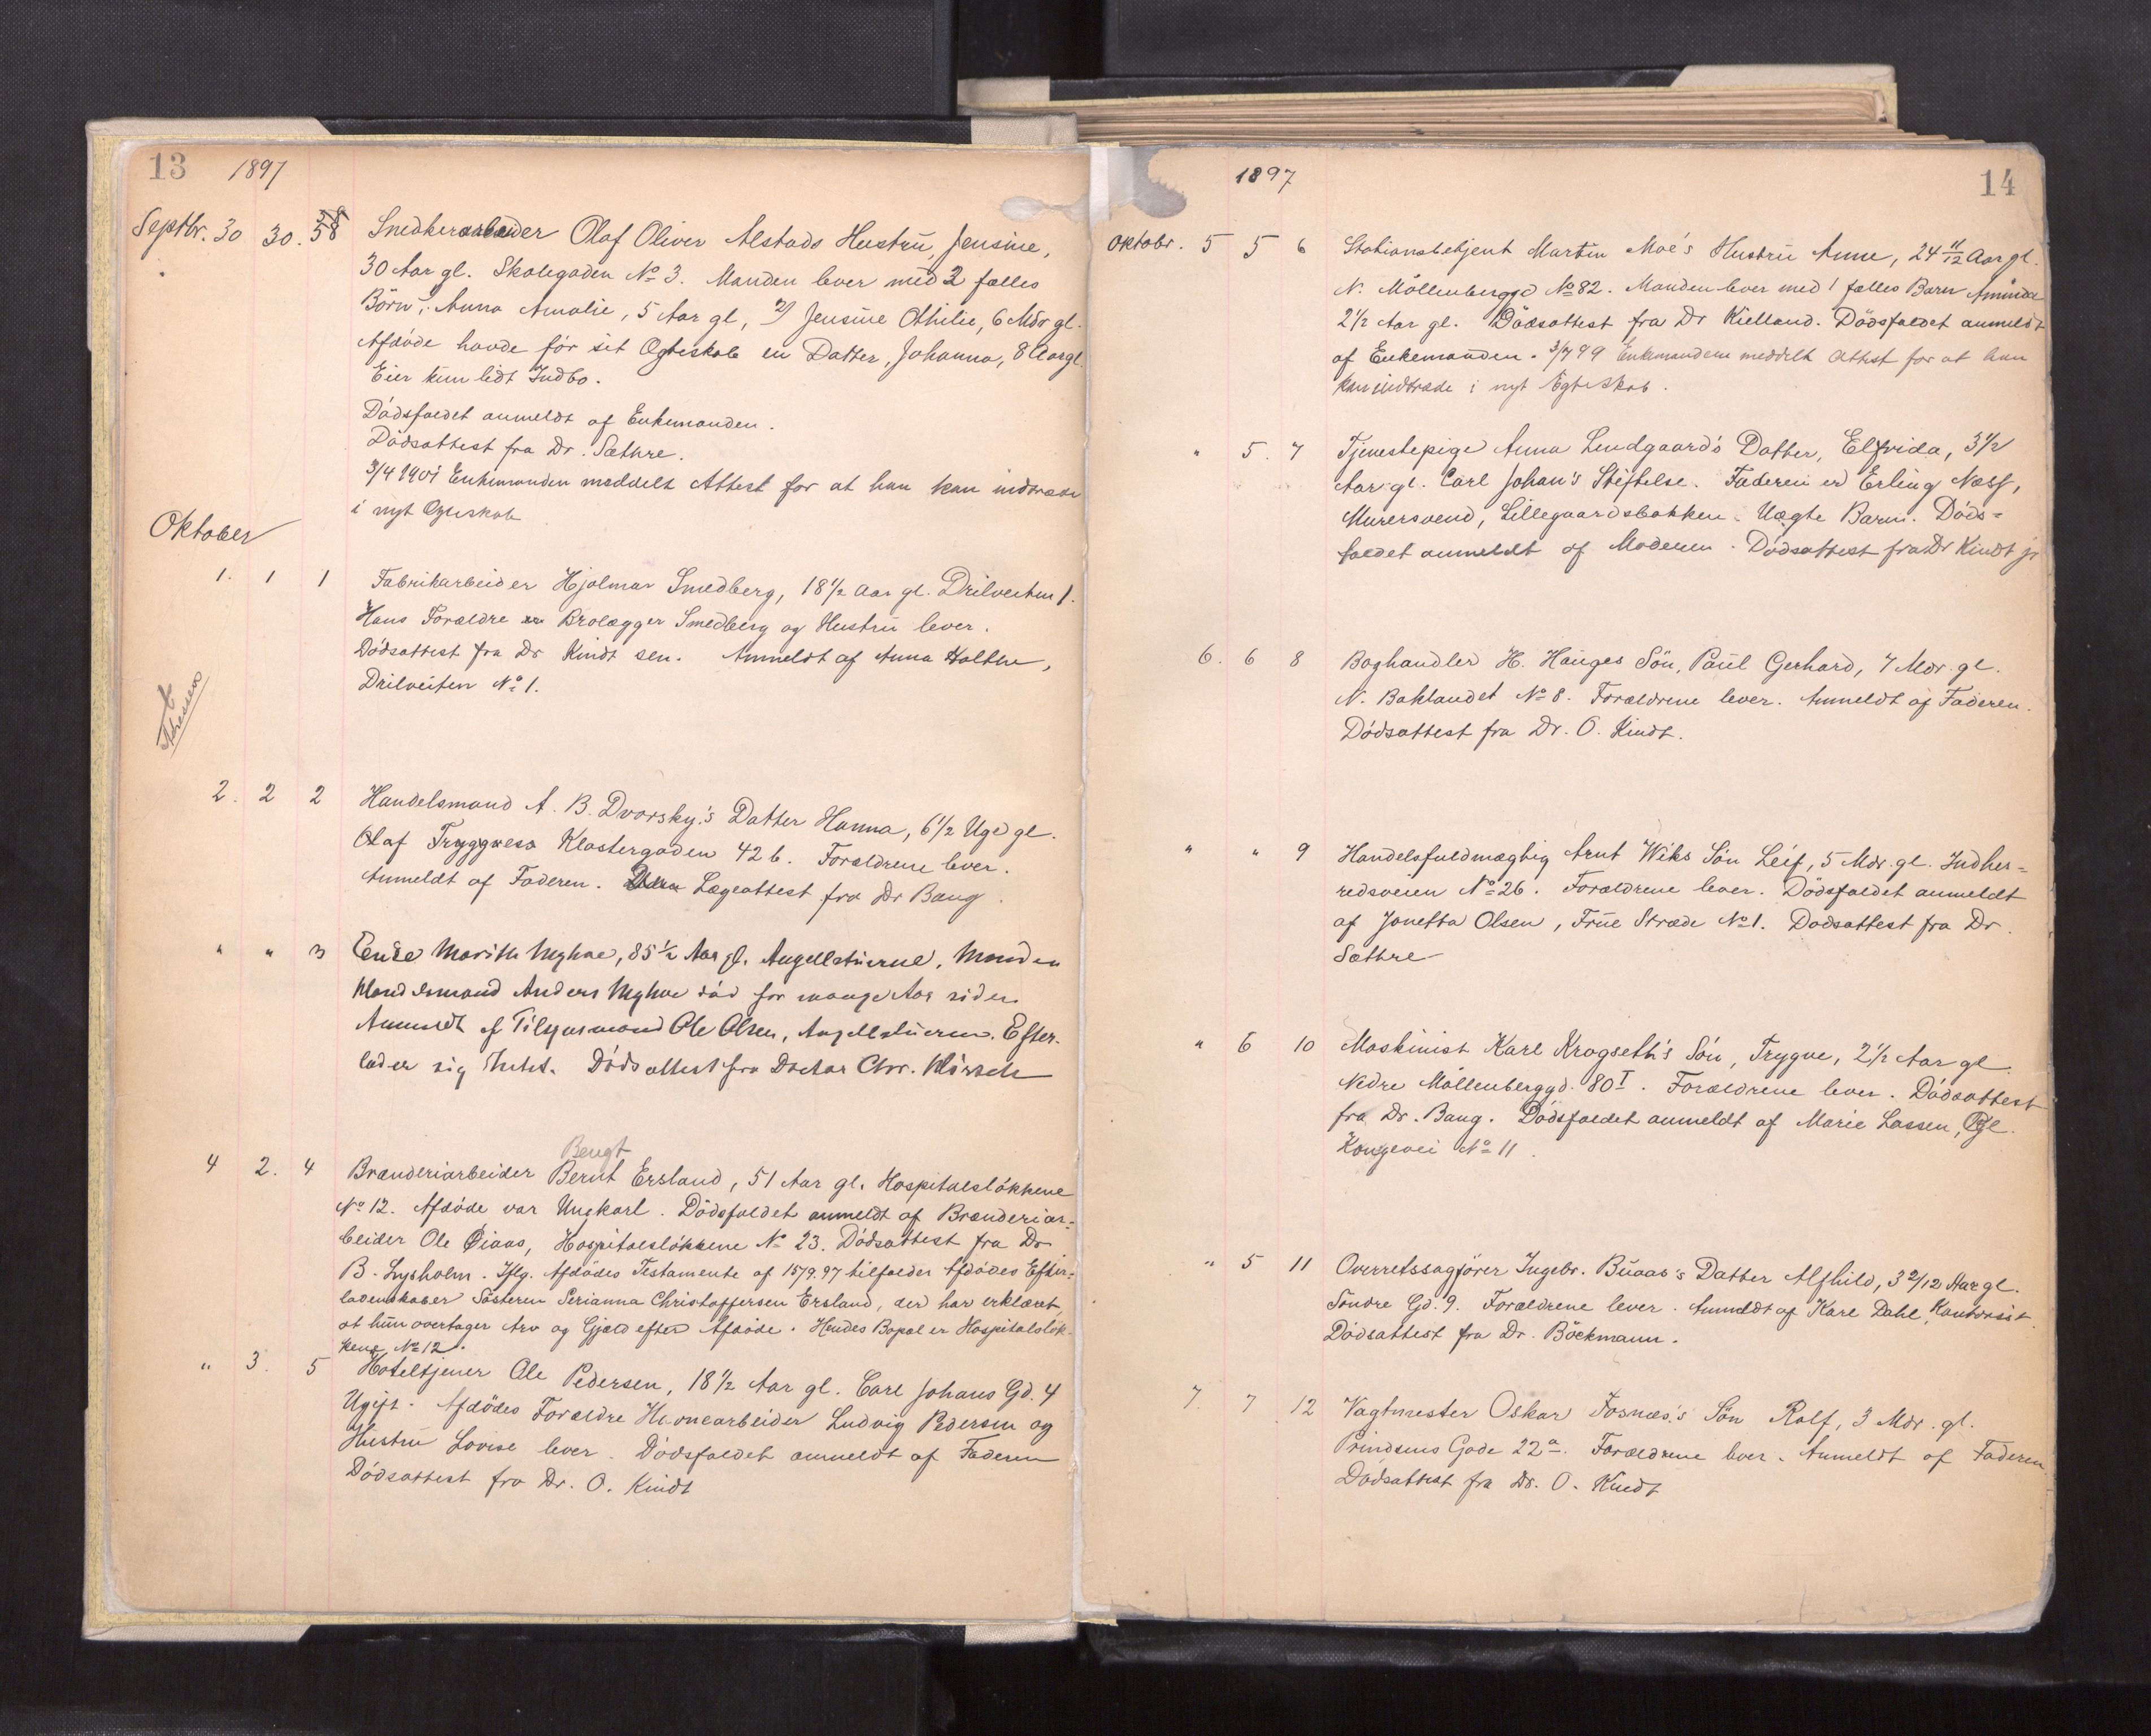 13 1897
Septbr. 30 30. 58 Snedkerarbeider Olaf Oliver Alstads Hustru, Jensine,
30 Aar gl. Skolegaden No 3. Manden lever med 2 fælles
Börn: Anna Amalie, 5 Aar gl, 2) Jensine Othilie, 6 Mdr gl.
Afdöde havde för sit Ægteskab en Datter, Johanna, 8 Aar gl.
Eier kun lidt Indbo.
Dödsfaldet anmeldt af Enkemanden.
Dödsattest fra Dr. Sæthre.
3/4 1901 Enkemanden meddelt Attest for at han kan indtræde
i nyt Ægteskab
Oktober
1. 1 1 Fabrikarbeider Hjalmar Smedberg, 18 1/2 Aar gl. Drilveiten 1.
Hans Forældre Brolægger Smedberg og Hustru lever.
Dödsattest fra Dr Kindt sen. Anmeldt af Anna Holthe,
Drilveiten No 1.
2. 2 2 Handelsmand A. B. Dvorsky's Datter Hanna, 6 1/2 Uge gl.
Olaf Tryggvess Klostergaden 42 b. Forældrene lever.
Anmeldt af Faderen. Lægeattest fra Dr Bang.
" " 3 Enke Marith Myhre, 85 1/2 Aar gl. Angellstuerne. Manden
Handelsmand Anders Myhre död for mange Aar siden
Anmeldt af Tilsynsmand Ole Olsen, Angellstuerne. Efter-
lader sig Intet. Dödsattest fra Doctor Chr.
Bengt
4 2. 4 Brænderiarbeider Bernt Ersland, 51 Aar gl. Hospitalslökkene
No 12. Afdöde var Ungkarl. Dödsfaldet anmeldt af Brænderiar-
beider Ole Öiaas, Hospitalslökkene No 23. Dödsattest fra Dr
B. Lysholm. Iflg. Afdödes Testamente af 15/9.97 tilfalder Afdödes Efter-
ladenskaber Sösteren Serianna Christoffersen Ersland, der har erklæret,
at hun overtager Arv og Gjæld efter Afdöde. Hendes Bopæl er Hospitalslök-
kene No 12.
" 3. 5 Hoteltjener Ole Pedersen, 18 1/2 Aar gl. Carl Johans Gd. 4
Ugift. Afdödes Forældre Havnearbeider Ludvig Pedersen og
Hustru Lovise lever. Dödsfaldet anmeldt af Faderen
Dödsattest fra Dr. O. Kindt
1897 14
Oktobr. 5 5 6 Stationsbetjent Martin Moe's Hustru Anne, 24 11/12 Aar gl.
N. Möllenberggd No 82. Manden lever med 1 fælles Barn
2 1/2 Aar gl. Dödsattest fra Dr Kielland. Dödsfaldet anmeldt
af Enkemanden. 3/7 99 Enkemanden meddelt Attest for at han
kan indtræde i nyt Ægteskab.
" 5. 7 Tjenestepige Anna Lundgaard's Datter, Elfrida, 3 1/2
Aar gl. Carl Johan's Stiftelse. Faderen er Erling Næss,
Murersvend, Lillegaardsbakken. Uægte Barn. Döds-
faldet anmeldt af Moderen. Dödsattest fra Dr Kindt jr
6. 6 8 Boghandler H. Hauges Sön, Paul Gerhard, 7 Mdr. gl.
N. Baklandet No 8. Forældrene lever. Anmeldt af Faderen.
Dödsattest fra Dr. O. Kindt.
" " 9 Handelsfuldmægtig Arnt Wiks Sön Leif, 5 Mdr. gl. Indher-
redsveien No 26. Forældrene lever. Dödsfaldet anmeldt
af Jonetta Olsen, Frue Stræde No 1. Dödsattest fra Dr.
Sæthre
" 6 10 Maskinist Karl Krogseth's Sön, Trygve, 2 1/2 Aar gl.
Nedre Möllenberggd. 80 I. Forældrene lever. Dödsattest
fra Dr. Bang. Dödsfaldet anmeldt af Marie Lassen, Gl.
Kongevei No 11.
" 5 11 Overretssagförer Ingebr. Buaas's Datter Alfhild, 3 2/12 Aar gl.
Söndre Gd. 9. Forældrene lever. Anmeldt af Karl Dahl, Kontorist.
Dödsattest fra Dr. Böckmann.
7. 7 12 Vagtmester Oskar Fosnæs's Sön Rolf, 3 Mdr. gl.
Prindsens Gade 22 a. Forældrene lever. Anmeldt af Faderen.
Dödsattest fra Dr. O. Kindt